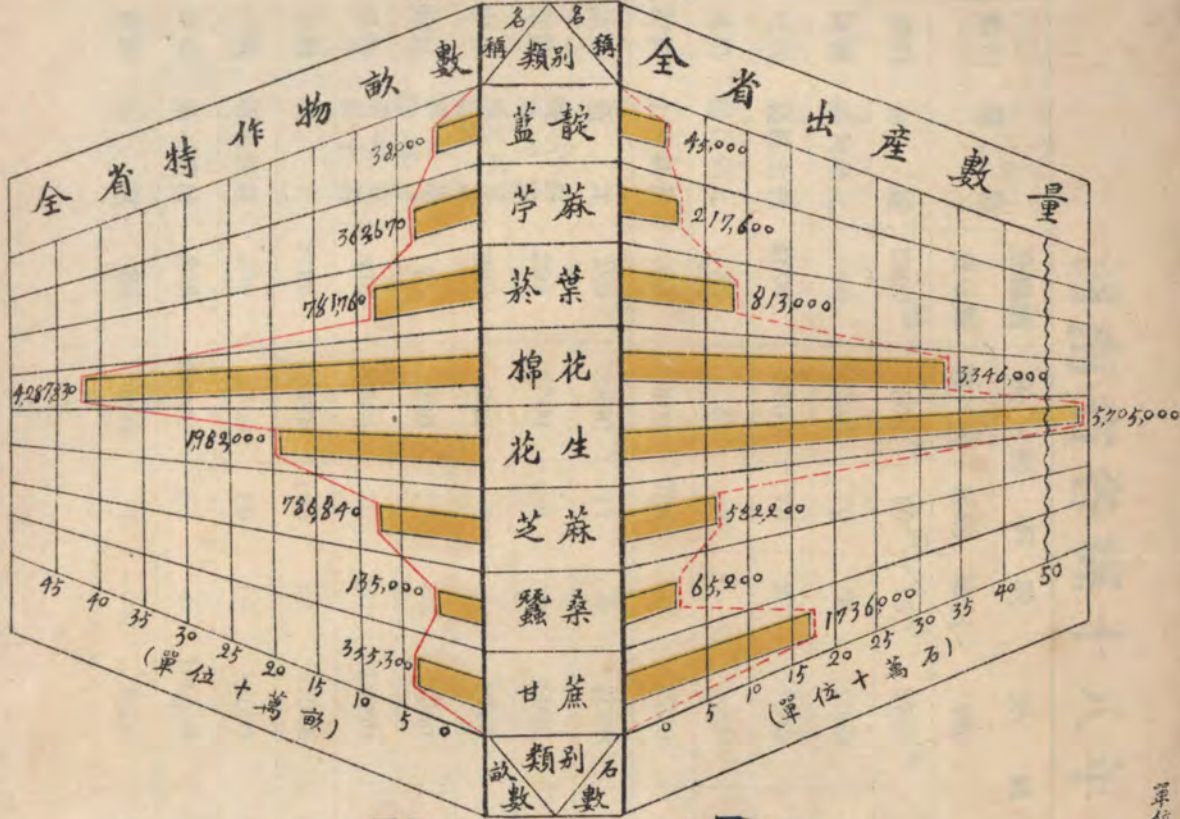 名稱 名稱
類別
全省特作物畝數
全省出產數量
藍靛
苧蔴
菸葉
棉花
花生
芝蔴
蠶桑
甘蔗
38,000
363,670
783,760
4,287,830
1,982,000
786,840
135,000
355,300
45,000
217,600
813,000
3,346,000
5,705,000
582,200
65,200
1,736,000
45 40 35 30 25 20 15 10 5 0
(單位十萬畝)
0 5 10 15 20 25 30 35 40 45 50
(單位十萬石)
類別
畝數 石數
單位